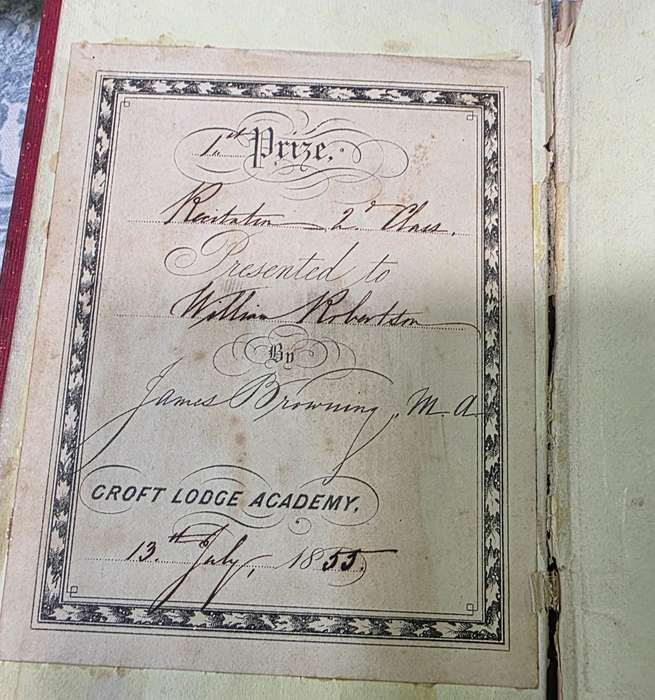 1st Prize.
Recitation 2d Class.
Presented to
William Robertson
By
James Browning, M.A
CROFT LODGE ACADEMY.
13th July, 1855.